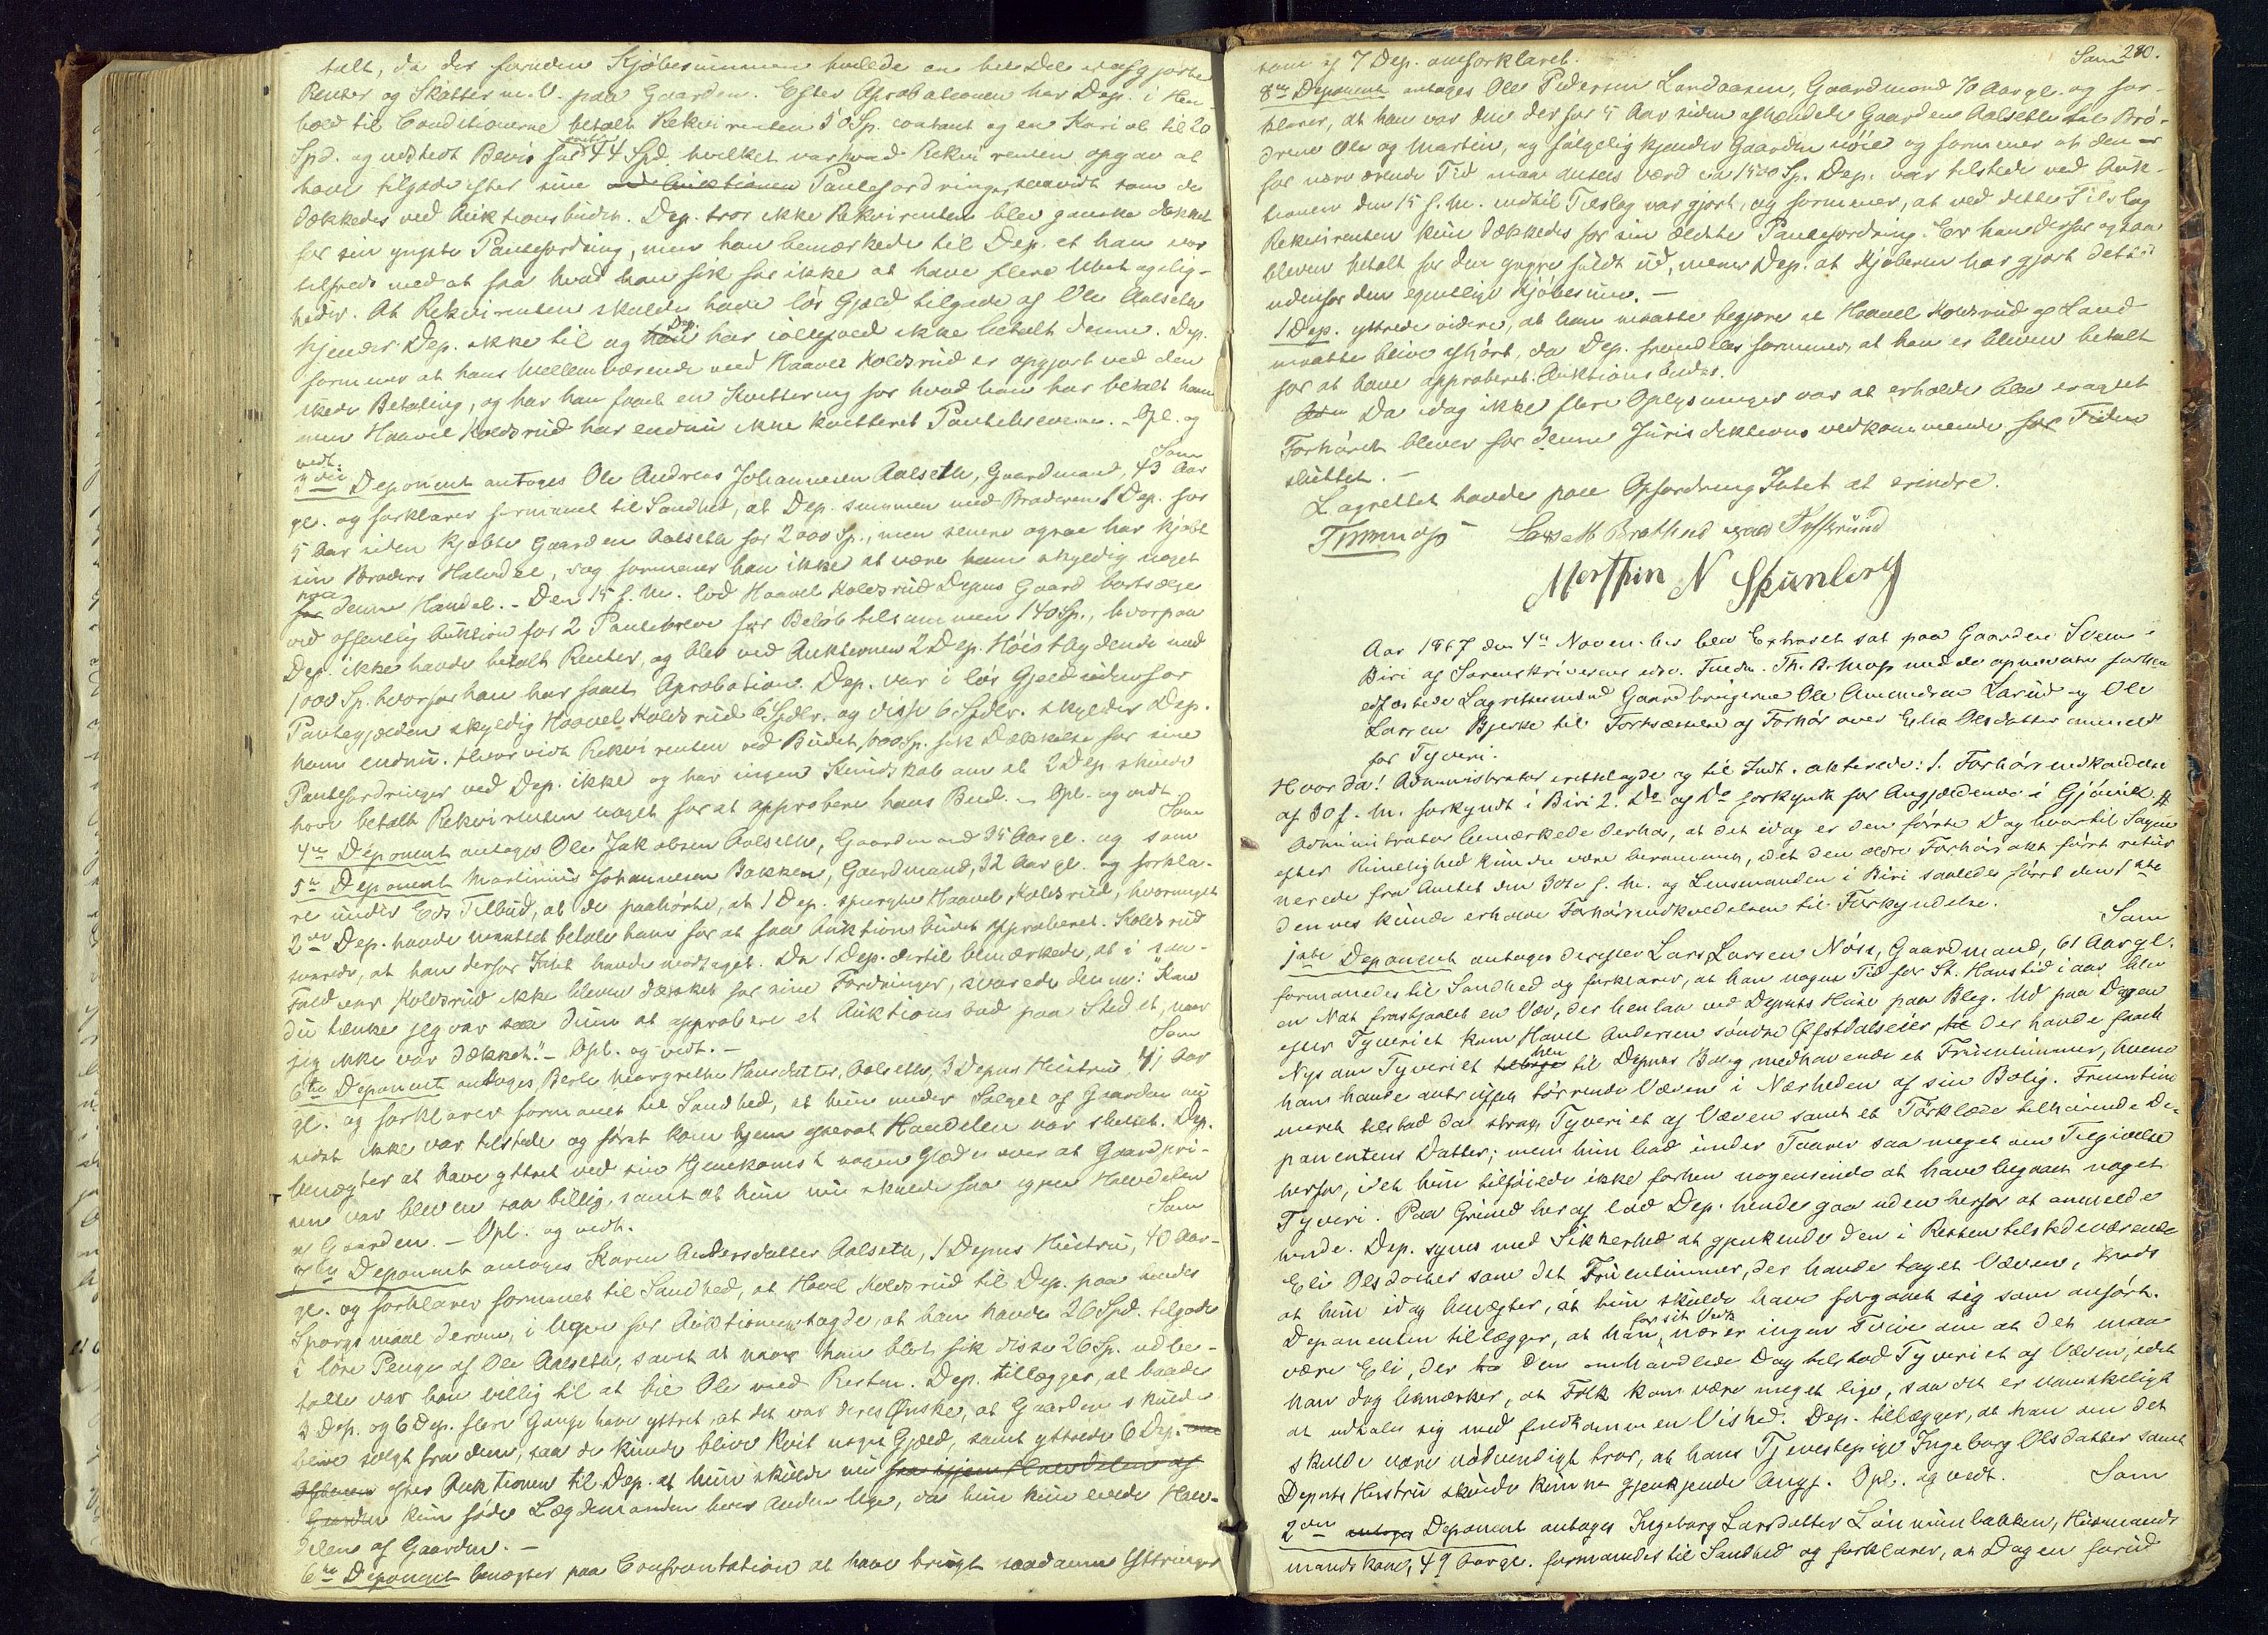 talt, da der foruden Kjøbesummen heilede en hel Del uafgjorte
Renter og Skatter m. V. paa Gaarden. Efter Aprobationen har Dep. i Hen-
hold til Conditionerne betalt Rekvirenten 50 Sp. contant og en Kari ol til 20
Spd. og udstedt Bevis for 44 Spd. hvilket var hvad Rekvirenten opgav at
have tilgode efter sine ved Auktionen Pantefordringer, saavidt som de
dækkedes ved Auktionsbudet. Dep. tror ikke Rekvirenten blev ganske dækket
for sin yngste Pantefordring, men han bemærkede til Dep. at han var
tilfreds med at faa hvad han fik for ikke at have flere Ubehagelig-
heder. At Rekvirenten skulde have løs Gjæld tilgode af Ole Aalseth
kjender Dep. ikke til og han Dep. har iallefald ikke betalt denne. Dep.
formener at hans Mellemværende med Haavel Koldsrud er opgjort ved den
skede Betaling, og har han faaet en Kvittering for hvad han har betalt ham
men Haavel Koldsrud har endnu ikke kvitteret Pantebrevene. - Opl. og
vedt. Som
3die Deponent antoges Ole Andreas Johannesen Aalseth, Gaardmand, 43 Aar
gl. og forklarer formanet til Sandhed, at Dep. sammen med Broderen 1 Dep. for
5 Aar siden kjøbte Gaarden Aalseth for 2000 Sp., men senere ogsaa har kjøbt
sin Broders Halvdel, og formener han ikke at være ham skyldig noget
for paa denne Handel. - Den 15 f. M. lod Haavel Koldsrud Depns Gaard bortsælge
ved offentlig Auktion for 2 Pantebreve for Beløb tilsammen 140 Sp., hvorpaa
Dep. ikke havde betalt Renter, og blev ved Auktionen 2 Dep. Høistbydende med
1000 Sp. hvorfor han har faaet Aprobation. Dep. var i løs Gjeld udenfor
Pantegjælden skyldig Haavel Koldsrud 6 Spdlr. og disse 6 Spdlr. skylder Dep.
ham endnu. Hvorvidt Rekvirenten ved Budet 1000 Sp. fik Dækkelse for sine
Pantefordringer ved Dep. ikke og har ingen Kundskab om at 2 Dep. skulde
have betalt Rekvirenten noget for at approbere hans Bud. - Opl. og vedt.
Som
4de Deponent antoges Ole Jakobsen Aalseth, Gaardmand 35 Aar gl. og som
5te Deponent Martinius Johannesen Bakken, Gaardmand, 32 Aar gl. og forkla-
re under Eds Tilbud, at de paahørte, at 1 Dep. spurgte Haavel Koldsrud, hvormeget
2den Dep. havde maattet betale ham for at faa Auktionsbudet approberet. Koldsrud
svarede, at han derfor Intet havde modtaget. Da 1 Dep. dertil bemærkede, at i saa-
Fald var Koldsrud ikke bleven dækket for sine Fordringer, svarede denne: "Kan
du tænke jeg var saa dum at approbere et Auktionsbud paa Stedet, naar
jeg ikke var dækket." - Opl. og vedt. - Som
6te Deponent antoges Berte Margrethe Hansdatter Aalseth, 3 Depns Hustru, 41 Aar
gl. og forklarer formanet til Sandhed, at hun under Salget af Gaarden nu
sidst ikke var tilstede og først kom hjem efterat Handelen var sluttet. Dep.
benægter at have yttret ved sin Hjemkomst nogen Glæde over at Gaardpri-
sen var bleven saa billig, samt at hun nu skulde faa igjen Halvdelen
af Gaarden. - Opl. og vedt. Som
7de Deponent antoges Karen Andersdatter Aalseth, 1 Depns Hustru, 40 Aar-
gl. og forklarer formanet til Sandhed, at Havel Koldsrud til Dep. paa hendes
Spørgsmaal derom, i Ugen før Auktionen sagde, at han havde 26 Spd. tilgode
i løse Penge af Ole Aalseth, samt at naar han blot fik disse 26 Sp. udbe-
talte var han villig til at bie Ole med Resten. Dep. tillægger, at baade
3 Dep. og 6 Dep. flere Gange have yttret, at det var deres Ønske, at Gaarden skulde
blive solgt fra dem, saa de kunde blive kvit noget Gjæld, samt yttrede 6 Dep.
Aftenen efter Auktionen til Dep. at hun skulde nu faa igjen Halvdelen af
Gaarden kun føde Lægdemanden hver anden Uge, da hun kun eiede Halv-
delen af Gaarden. -
6te Deponent benægter paa Confrontation at have brugt saadanne Yttringer
som af 7 Dep. omforklaret. Som 280.
8de Deponent antoges Ole Pedersen Landaasen, Gaardmand 70 Aar gl. og for-
klarer, at han var den der for 5 Aar siden afhændede Gaarden Aalseth til Brø-
drene Ole og Martin, og følgelig kjender Gaarden nøie og formener at den
for nærværende Tid maa ansees værd ca 1500 Sp. Dep. var tilstede ved Auk-
tionen den 15 f. M. indtil Tilslag var gjort, og formener, at ved dette Tilslag
Rekvirenten kun dækkedes for sin ældste Pantefordring. Er han derfor ogsaa
bleven betalt for den yngre fuldt ud, mener Dep. at Kjøberen har gjort dette
udenfor den egentlige Kjøbesum. -
1 Dep. yttrede videre, at han maatte begjære at Haavel Koldsrud og Land
maatte blive afhørt, da Dep. fremdeles formener, at han er bleven betalt
for at have approberet Auktionsbudet.
Da idag ikke flere Oplysninger var at erholde blev eragtet
Forhøret bliver for denne Jurisdiktions vedkommende for Tiden
sluttet. -
Lagrettet havde paa Opfordring Intet at erindre.
Lars M Brathed
Morthin N Skunberg
Aar 1867 den 4de November blev Extraret sat paa Gaarden Sveen i
Biri af Sorenskriverens edsv. Fuldm. Th. A. Moss med de opnævnte forhen
edfæstede Lagrettesmænd Gaardbrugerne Ole Amundsen Larud og Ole
Larsen Bjerke til Fortsættelse af Forhør over Eli Olsdatter anmeldt
for Tyveri.
Hvorda! Administrator fremlagde og til Indt. akterede: 1. Forhørindkaldelse
af 30 f. M. forkyndt i Biri 2. Do af Do forkyndt for Angjældende i Gjøvik #
Administrator bemærkede derhos, at det idag er den første Dag hvortil Sagen
efter Rimelighed kunde være berammet, idet den ældre Forhørsakt først retur
nerede fra Amtet den 30te f. M. og Lensmanden i Biri saaledes først den 1ste
dennes kunde erholde Forhørindkaldelsen til Forkyndelse.
Som
1ste Deponent antoges derefter Lars Larsen Nøss, Gaardmand, 61 Aar gl.
formanedes til Sandhed og forklarer, at han nogen Tid før St. Hanstid i aar blev
en Nat frastjaalet en Væv, der henlaa ved Deponts Huse paa Bleg. Ud paa Dagen
efter Tyveriet kom Havel Andersen søndre Øfstdalseier der havde faaet
Nys om Tyveriet tilbage hen til Depnts Bolig medhavende et Fruentimmer, hvem
han havde antruffet tørrende Væven i Nærheden af sin Bolig. Fruentim
meret tilstod da strax Tyveriet af Væven samt et Tørklæde tilhørende De-
ponentens Datter; men hun bad under Taarer saa meget om Tilgivelse
herfor, idet hun tilføiede ikke forhen nogensinde at have begaaet noget
Tyveri. Paa Grund heraf lod Dep. hende gaa uden herfor at anmelde
hende. Dep. synes med Sikkerhed at gjenkende den i Retten tilstedeværende
Eli Olsdatter som det Fruentimmer, der havde taget Væven, trods
at hun idag benægter, at hun skulde have forgaaet sig som anført.
Deponenten tillægger, at han for sit Vedk. nærer ingen Tvivl om at det maa
være Eli, der den omhandlede Dag tilstod Tyveriet af Væven, idet
han dog bemærker, at Folk kan være meget lige, saa det er vanskeligt
at udtale sig med fuldkommen Vished. Dep. tillægger, at han om det
skulde være nødvendigt tror, at hans Tjenestepige Ingeborg Olsdatter samt
Depnts Hustru skulde kunne gjenkjende Angj. Opl. og vedt. Som
2den antoges Deponent antoges Ingeborg Larsdatter Lønnumbakken, Husmands
mandskone, 49 Aar gl. formanedes til Sandhed og forklarer, at Dagen forud